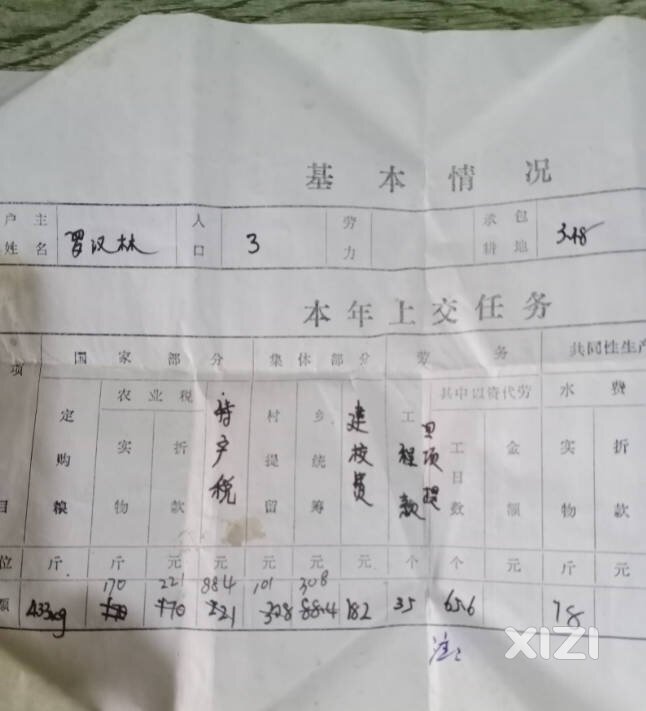 基本情况
户主姓名 罗汉林 人口 3 劳力 承包耕地 3.48
本年上交任务
项 国家部分 集体部分 劳务 共同性生产
农业税 其中以资代劳 水费
目 定购粮 实物 折款 特产税 村提留 乡统筹 建校费 工程款 工日数 金额 实物 折款
位 斤 斤 元 元 元 元 元 个 个 元 斤 元
170 221 884 101 308
额 433kg 170 221 328 884 182 35 656 78
注:
XIZI